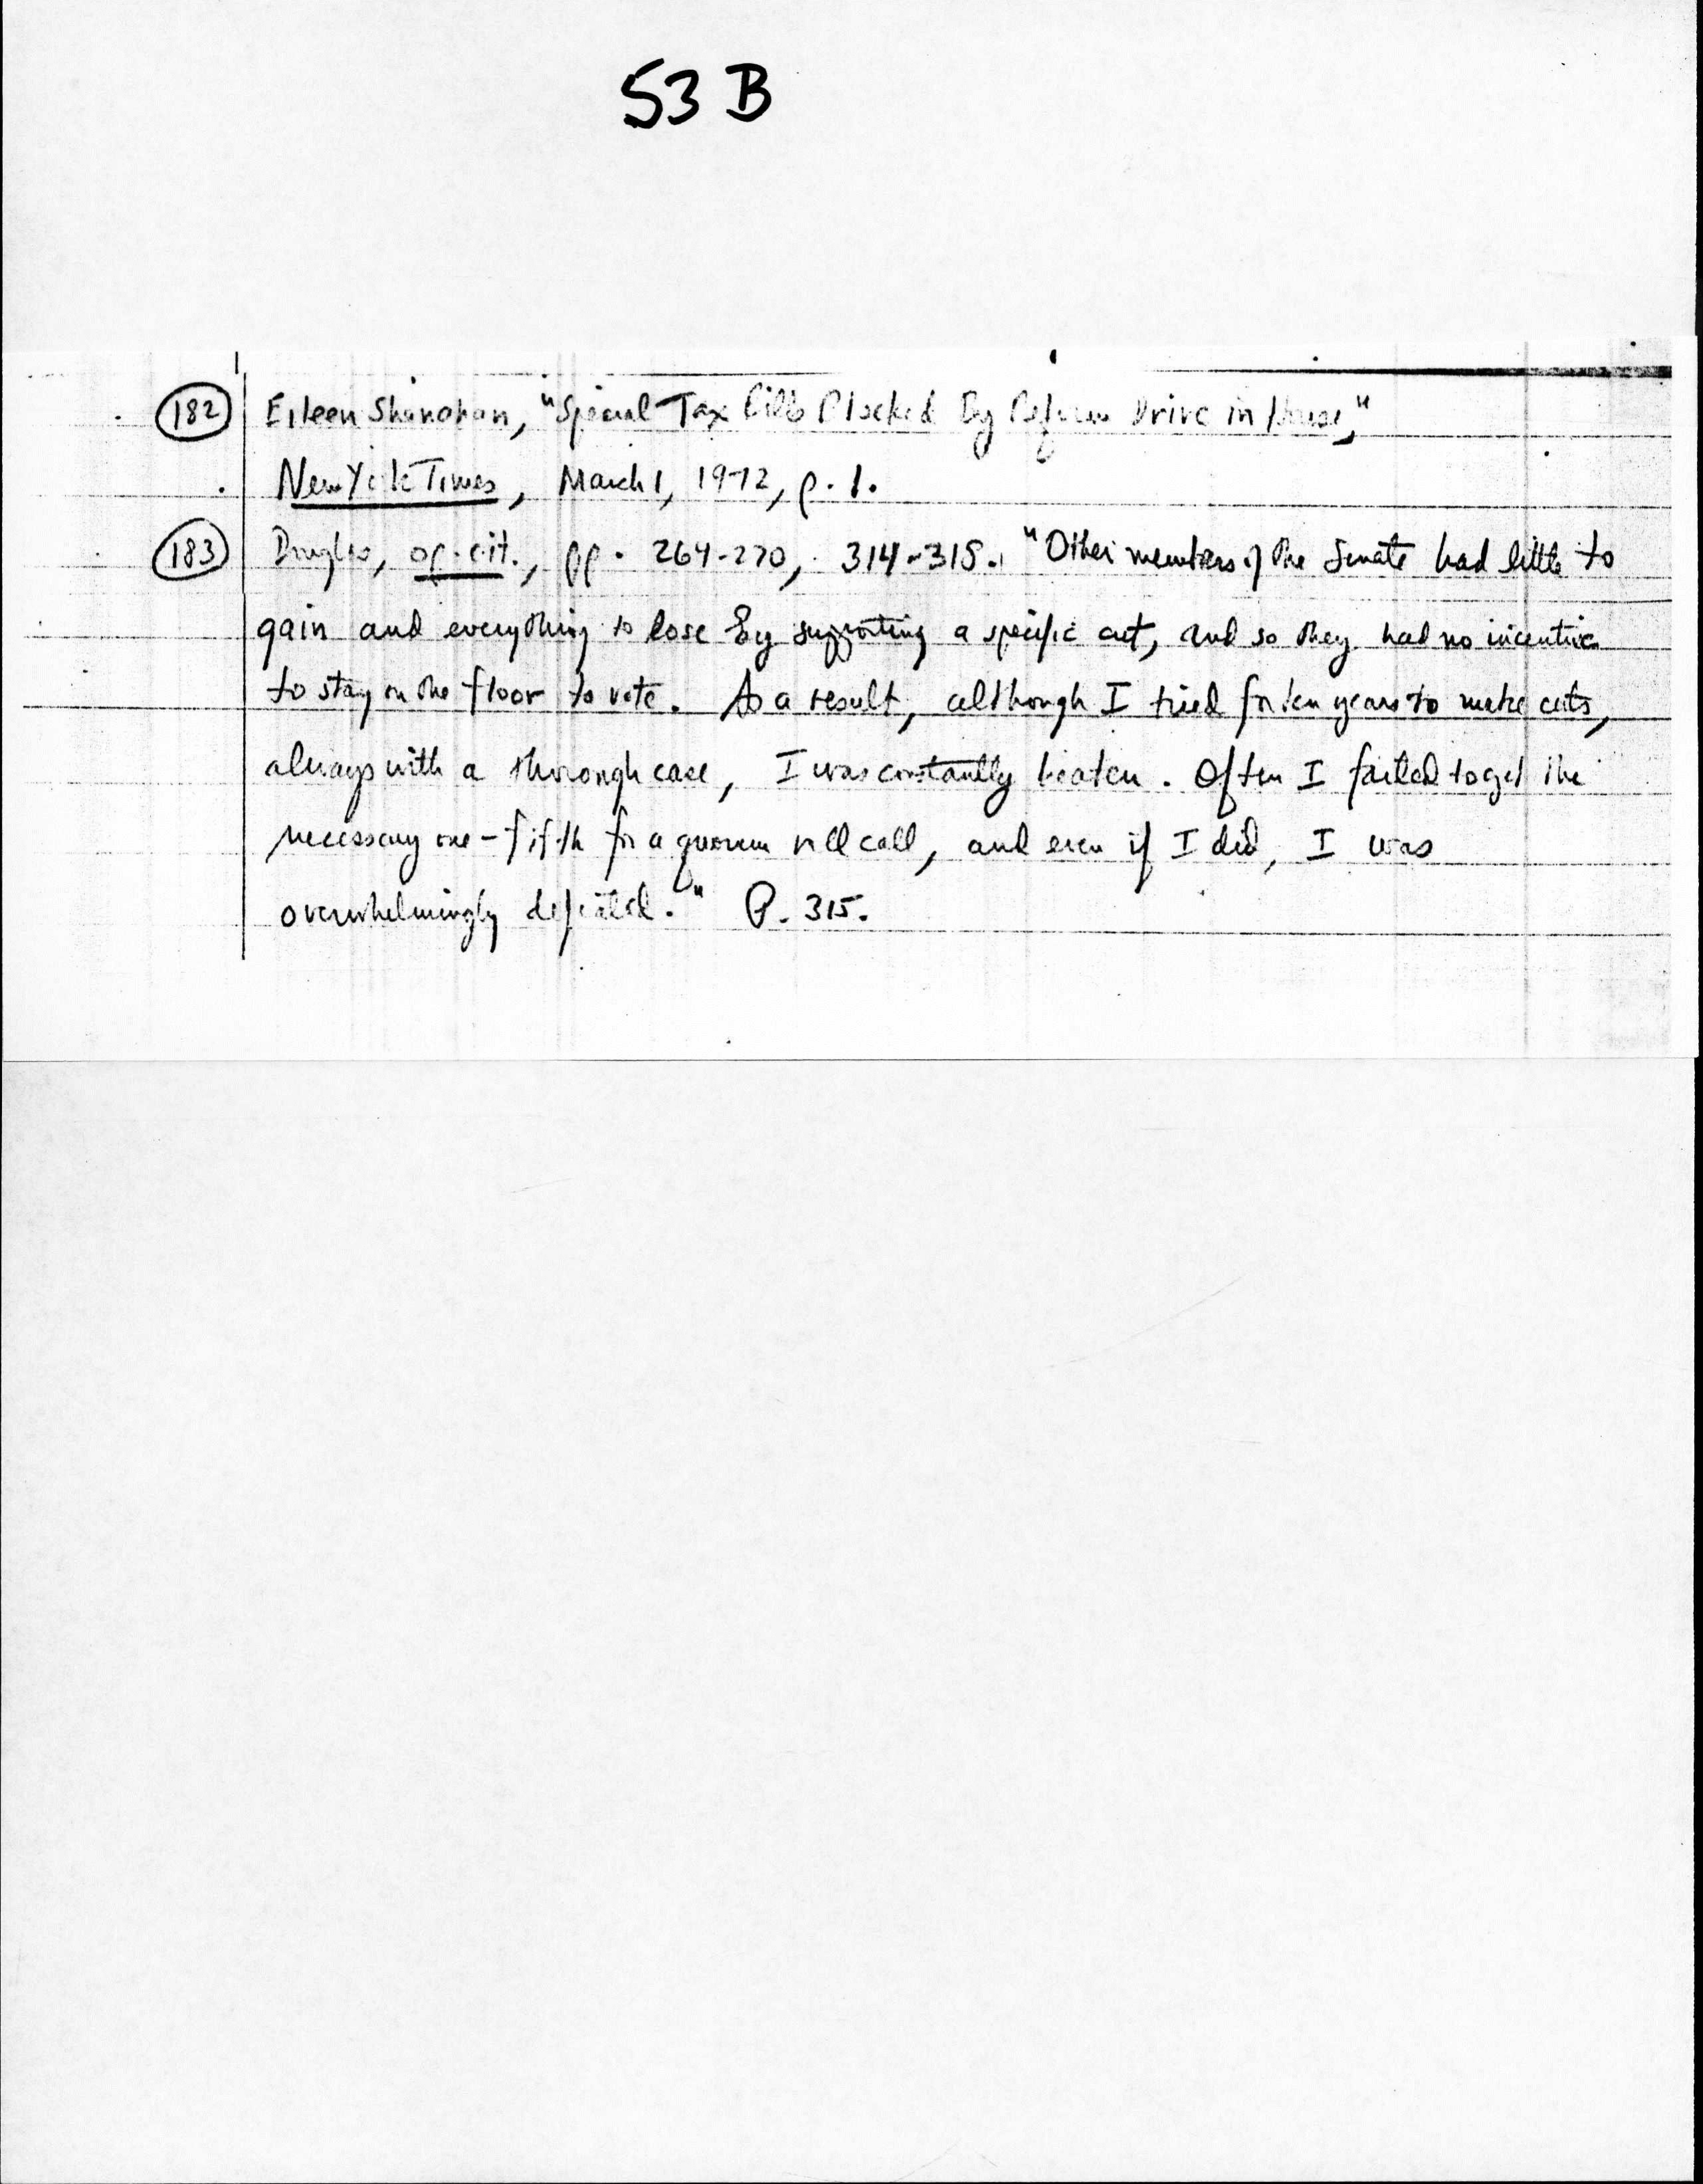 53 B
182 Eileen Shanahan, "Special Tax Bills Blocked By Reform Drive in House,"
New York Times, March 1, 1972, p. 1.
183 Douglas, op. cit., pp. 264-270, 314-315. "Other members of the Senate had little to
gain and everything to lose by supporting a specific cut, and so they had no incentive
to stay on the floor to vote. As a result, although I tried for ten years to make cuts,
always with a thorough case, I was constantly beaten. Often I failed to get the
necessary one-fifth for a quorum roll call, and even if I did, I was
overwhelmingly defeated." P. 315.